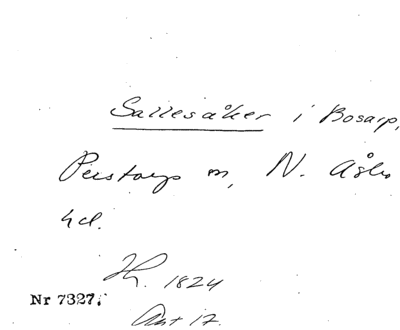 Sallesåker i Bosarp,
Perstorps m, N. Åsbo
hd.
H. 1824
Nr 7327.
Akt 17.